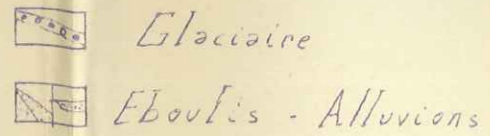 Glaciaire
Eboulis - Alluvions